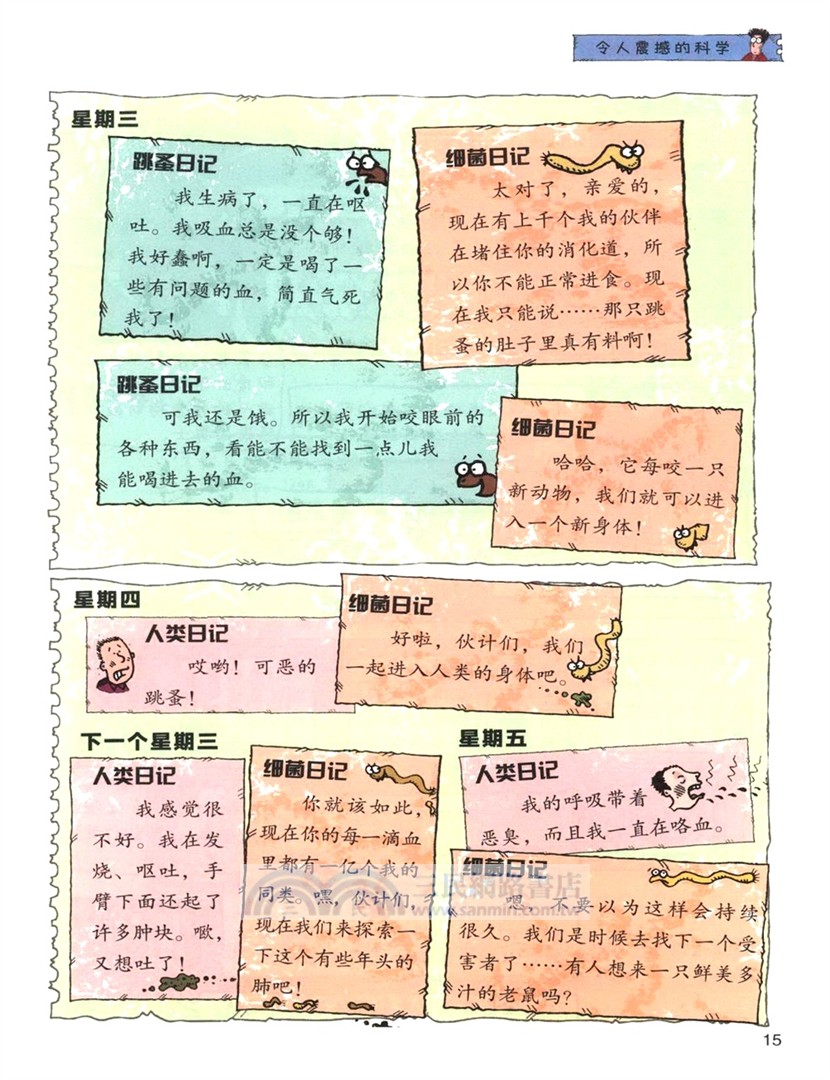 令人震撼的科学
星期三
跳蚤日记
我生病了，一直在呕
吐。我吸血总是没个够！
我好蠢啊，一定是喝了一
些有问题的血，简直气死
我了！
细菌日记
太对了，亲爱的，
现在有上千个我的伙伴
在堵住你的消化道，所
以你不能正常进食。现
在我只能说……那只跳
蚤的肚子里真有料啊！
跳蚤日记
可我还是饿。所以我开始咬眼前的
各种东西，看能不能找到一点儿我
能喝进去的血。
细菌日记
哈哈，它每咬一只
新动物，我们就可以进
入一个新身体！
星期四
人类日记
哎哟！可恶的
跳蚤！
细菌日记
好啦，伙计们，我们
一起进入人类的身体吧。
下一个星期三
人类日记
我感觉很
不好。我在发
烧、呕吐，手
臂下面还起了
许多肿块。噉，
又想吐了！
细菌日记
你就该如此，
现在你的每一滴血
里都有一亿个我的
同类。嘿，伙计们，
现在我们来探索一
下这个有些年头的
肺吧！
星期五
人类日记
我的呼吸带着
恶臭，而且我一直在咯血。
细菌日记
嗯，不要以为这样会持续
很久。我们是时候去找下一个受
害者了……有人想来一只鲜美多
汁的老鼠吗？
三民網路書店
www.sanmin.com.tw
15